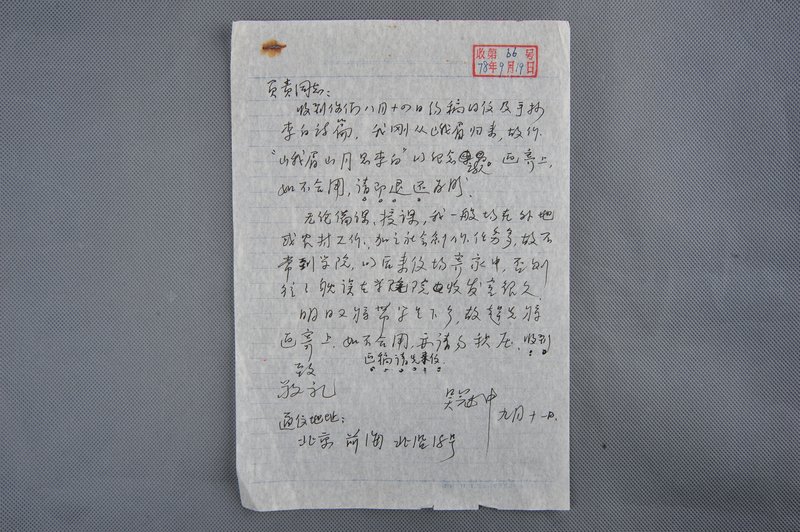 收第 66 号
78年9月19日
负责同志:
收到你们八月十四日约稿的信及手抄
李白诗篇。我刚从峨眉归来,故作
“峨眉山月忆李白”以纪念 画寄上,
如不合用,请即退还为盼。
无论备课、授课,我一般均在外地
或农村工作,加之社会创作任务多,故不
常到学院,以后来信均寄家中,否则
往往耽误在学院收发室很久。
明日又将带学生下乡,故赶先将
画寄上,如不合用,亦请勿积压。收到
画稿请先来信。
致
敬礼
吴冠中
九月十一日.
通信地址:
北京 前海 北沿18号